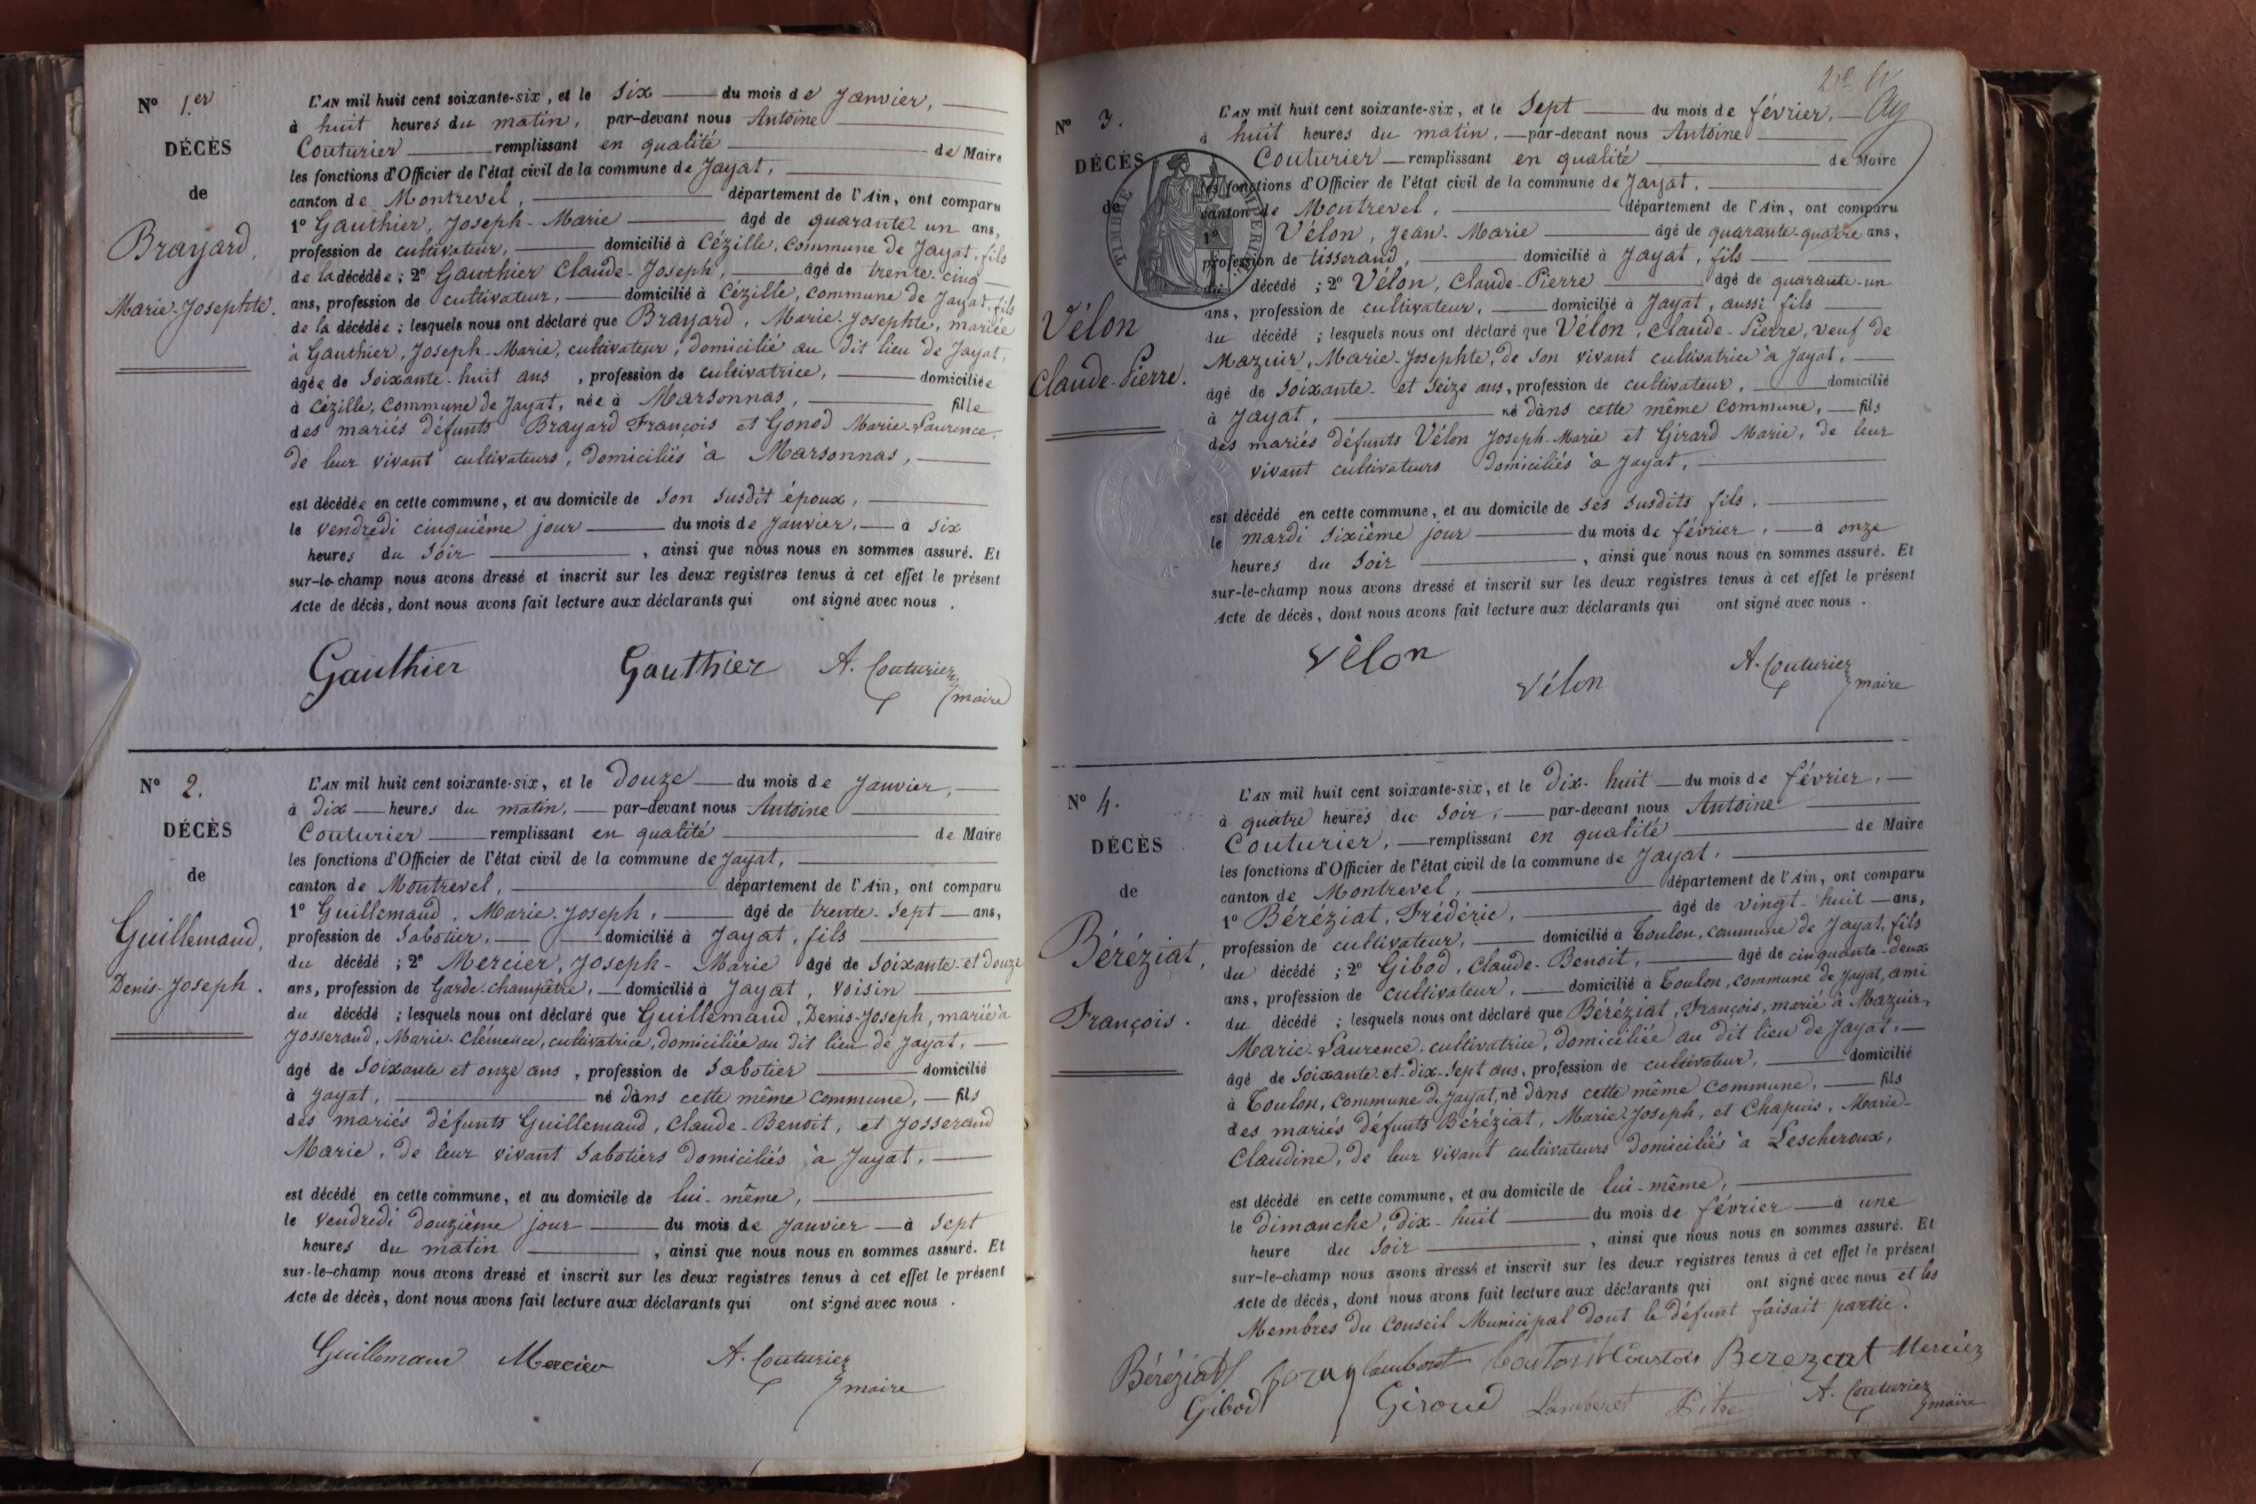 N° 1.er
DÉCÈS
de
Brayard,
Marie-Josephte.
L'AN mil huit cent soixante-six, et le six du mois de Janvier,
à huit heures du matin, par-devant nous Antoine
Couturier remplissant en qualité de Maire
les fonctions d'Officier de l'état civil de la commune de Jayat,
canton de Montrevel, département de l'Ain, ont comparu
1° Gauthier, Joseph-Marie âgé de quarante-un ans,
profession de cultivateur, domicilié à Cézille, commune de Jayat, fils
de la décédée ; 2° Gauthier Claude-Joseph, âgé de trente-cinq
ans, profession de cultivateur, domicilié à Cézille, commune de Jayat, fils
de la décédée ; lesquels nous ont déclaré que Brayard, Marie-Josephte, mariée
à Gauthier, Joseph-Marie, cultivateur, domicilié au dit lieu de Jayat,
âgée de soixante-huit ans, profession de cultivatrice, domiciliée
à Cézille, commune de Jayat, née à Marsonnas, fille
des mariés défunts Brayard François et Gonod Marie-Laurence,
de leur vivant cultivateurs, domiciliés à Marsonnas,
est décédée en cette commune, et au domicile de son susdit époux,
le vendredi cinquième jour du mois de Janvier, à six
heures du soir, ainsi que nous nous en sommes assuré. Et
sur-le-champ nous avons dressé et inscrit sur les deux registres tenus à cet effet le présent
Acte de décès, dont nous avons fait lecture aux déclarants qui ont signé avec nous.
Gauthier Gauthier A. Couturier
maire
N° 2.
DÉCÈS
de
Guillemaud,
Denis-Joseph.
L'AN mil huit cent soixante-six, et le douze du mois de Janvier,
à dix heures du matin, par-devant nous Antoine
Couturier remplissant en qualité de Maire
les fonctions d'Officier de l'état civil de la commune de Jayat,
canton de Montrevel, département de l'Ain, ont comparu
1° Guillemaud, Marie-Joseph, âgé de trente-sept ans,
profession de sabotier, domicilié à Jayat, fils
du décédé ; 2° Mercier, Joseph-Marie âgé de soixante-et douze
ans, profession de Garde-champêtre, domicilié à Jayat, voisin
du décédé ; lesquels nous ont déclaré que Guillemaud, Denis-Joseph, marié à
Josserand, Marie-Clémence, cultivatrice, domiciliée au dit lieu de Jayat,
âgé de soixante et onze ans, profession de sabotier domicilié
à Jayat, né dans cette même commune, fils
des mariés défunts Guillemaud, Claude-Benoit, et Josserand
Marie, de leur vivant sabotiers domiciliés à Jayat,
est décédé en cette commune, et au domicile de lui-même,
le vendredi douzième jour du mois de Janvier à sept
heures du matin, ainsi que nous nous en sommes assuré. Et
sur-le-champ nous avons dressé et inscrit sur les deux registres tenus à cet effet le présent
Acte de décès, dont nous avons fait lecture aux déclarants qui ont signé avec nous.
Guillemaud Mercier A. Couturier
maire
N° 3.
DÉCÈS
de
TIMBRE IMPERIAL
Vélon
Claude-Pierre.
L'AN mil huit cent soixante-six, et le sept du mois de février,
à huit heures du matin, par-devant nous Antoine
Couturier remplissant en qualité de Maire
les fonctions d'Officier de l'état civil de la commune de Jayat,
canton de Montrevel, département de l'Ain, ont comparu
1° Vélon, Jean-Marie âgé de quarante-quatre ans,
profession de tisserand, domicilié à Jayat, fils
du décédé ; 2° Vélon, Claude-Pierre âgé de quarante-un
ans, profession de cultivateur, domicilié à Jayat, aussi fils
du décédé ; lesquels nous ont déclaré que Vélon, Claude-Pierre, veuf de
Mazuir, Marie-Josephte, de son vivant cultivatrice à Jayat,
âgé de soixante-et seize ans, profession de cultivateur, domicilié
à Jayat, né dans cette même commune, fils
des mariés défunts Vélon Joseph-Marie et Girard Marie, de leur
vivant cultivateurs domiciliés à Jayat,
est décédé en cette commune, et au domicile de ses susdits fils,
le mardi sixième jour du mois de février, à onze
heures du soir, ainsi que nous nous en sommes assuré. Et
sur-le-champ nous avons dressé et inscrit sur les deux registres tenus à cet effet le présent
Acte de décès, dont nous avons fait lecture aux déclarants qui ont signé avec nous.
Vélon Vélon A. Couturier
maire
N° 4.
DÉCÈS
de
Béréziat,
François.
L'AN mil huit cent soixante-six, et le dix-huit du mois de février,
à quatre heures du soir, par-devant nous Antoine
Couturier, remplissant en qualité de Maire
les fonctions d'Officier de l'état civil de la commune de Jayat,
canton de Montrevel, département de l'Ain, ont comparu
1° Béréziat, Frédéric, âgé de vingt-huit ans,
profession de cultivateur, domicilié à Toulon, commune de Jayat, fils
du décédé ; 2° Gibod, Claude-Benoit, âgé de cinquante-deux
ans, profession de cultivateur, domicilié à Toulon, commune de Jayat, ami
du décédé ; lesquels nous ont déclaré que Béréziat, François, marié à Mazuir,
Marie-Laurence, cultivatrice, domiciliée au dit lieu de Jayat,
âgé de soixante-et-dix-sept ans, profession de cultivateur, domicilié
à Toulon, commune de Jayat, né dans cette même commune, fils
des mariés défunts Béréziat, Marie-Joseph, et Chapuis, Marie-
Claudine, de leur vivant cultivateurs domiciliés à Lescheroux,
est décédé en cette commune, et au domicile de lui-même,
le dimanche, dix-huit du mois de février à une
heure du soir, ainsi que nous nous en sommes assuré. Et
sur-le-champ nous avons dressé et inscrit sur les deux registres tenus à cet effet le présent
Acte de décès, dont nous avons fait lecture aux déclarants qui ont signé avec nous et les
Membres du Conseil Municipal dont le défunt faisait partie.
Béréziat Courtois Berezeat Mercier
Gibod Giroud Lamberet A. Couturier
maire